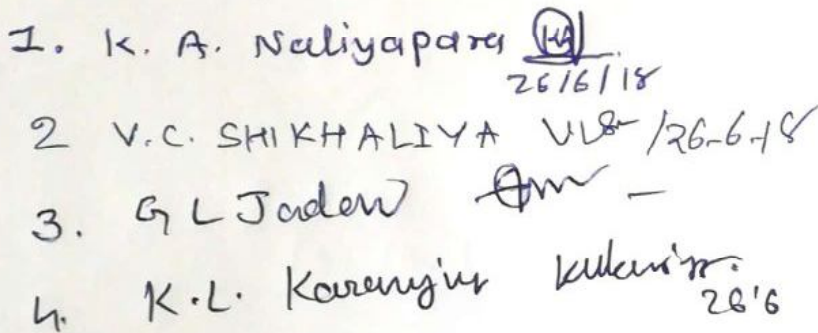 1. K. A. Naliyapara
26/6/18
2 V.C. SHIKHALIYA /26-6-18
3. G L Jadav
4. K.L.
26'6